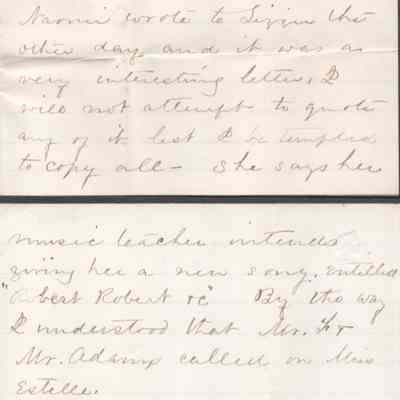 Naomi wrote to Lizzie the
other day and it was a
very interesting letter, I
will not attempt to quote
any of it lest I be tempted
to copy all - She says her
music teacher intends
giving her a new song. Entitled
Robert &c" By the way
I understood that Mr.
Mr. Adams called on Miss
Estelle.